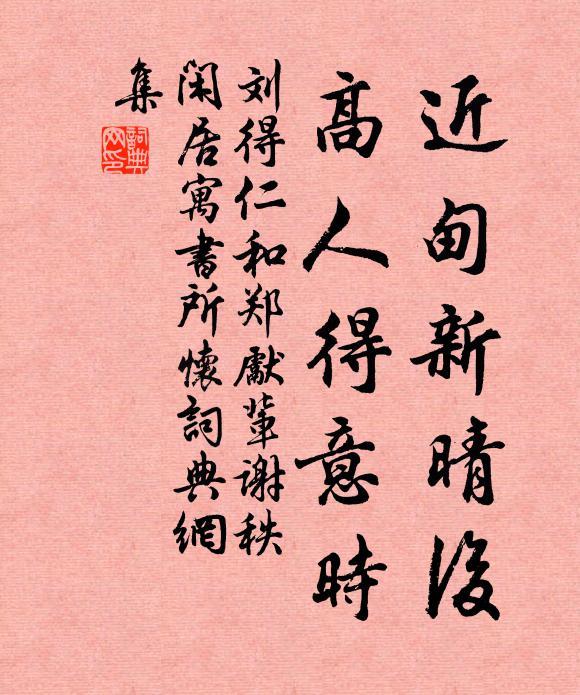 近甸新晴後
高人得意時
刘得仁和郑獻輩谢秩
閑居寓書所懷詞典網
集
詞典
网印